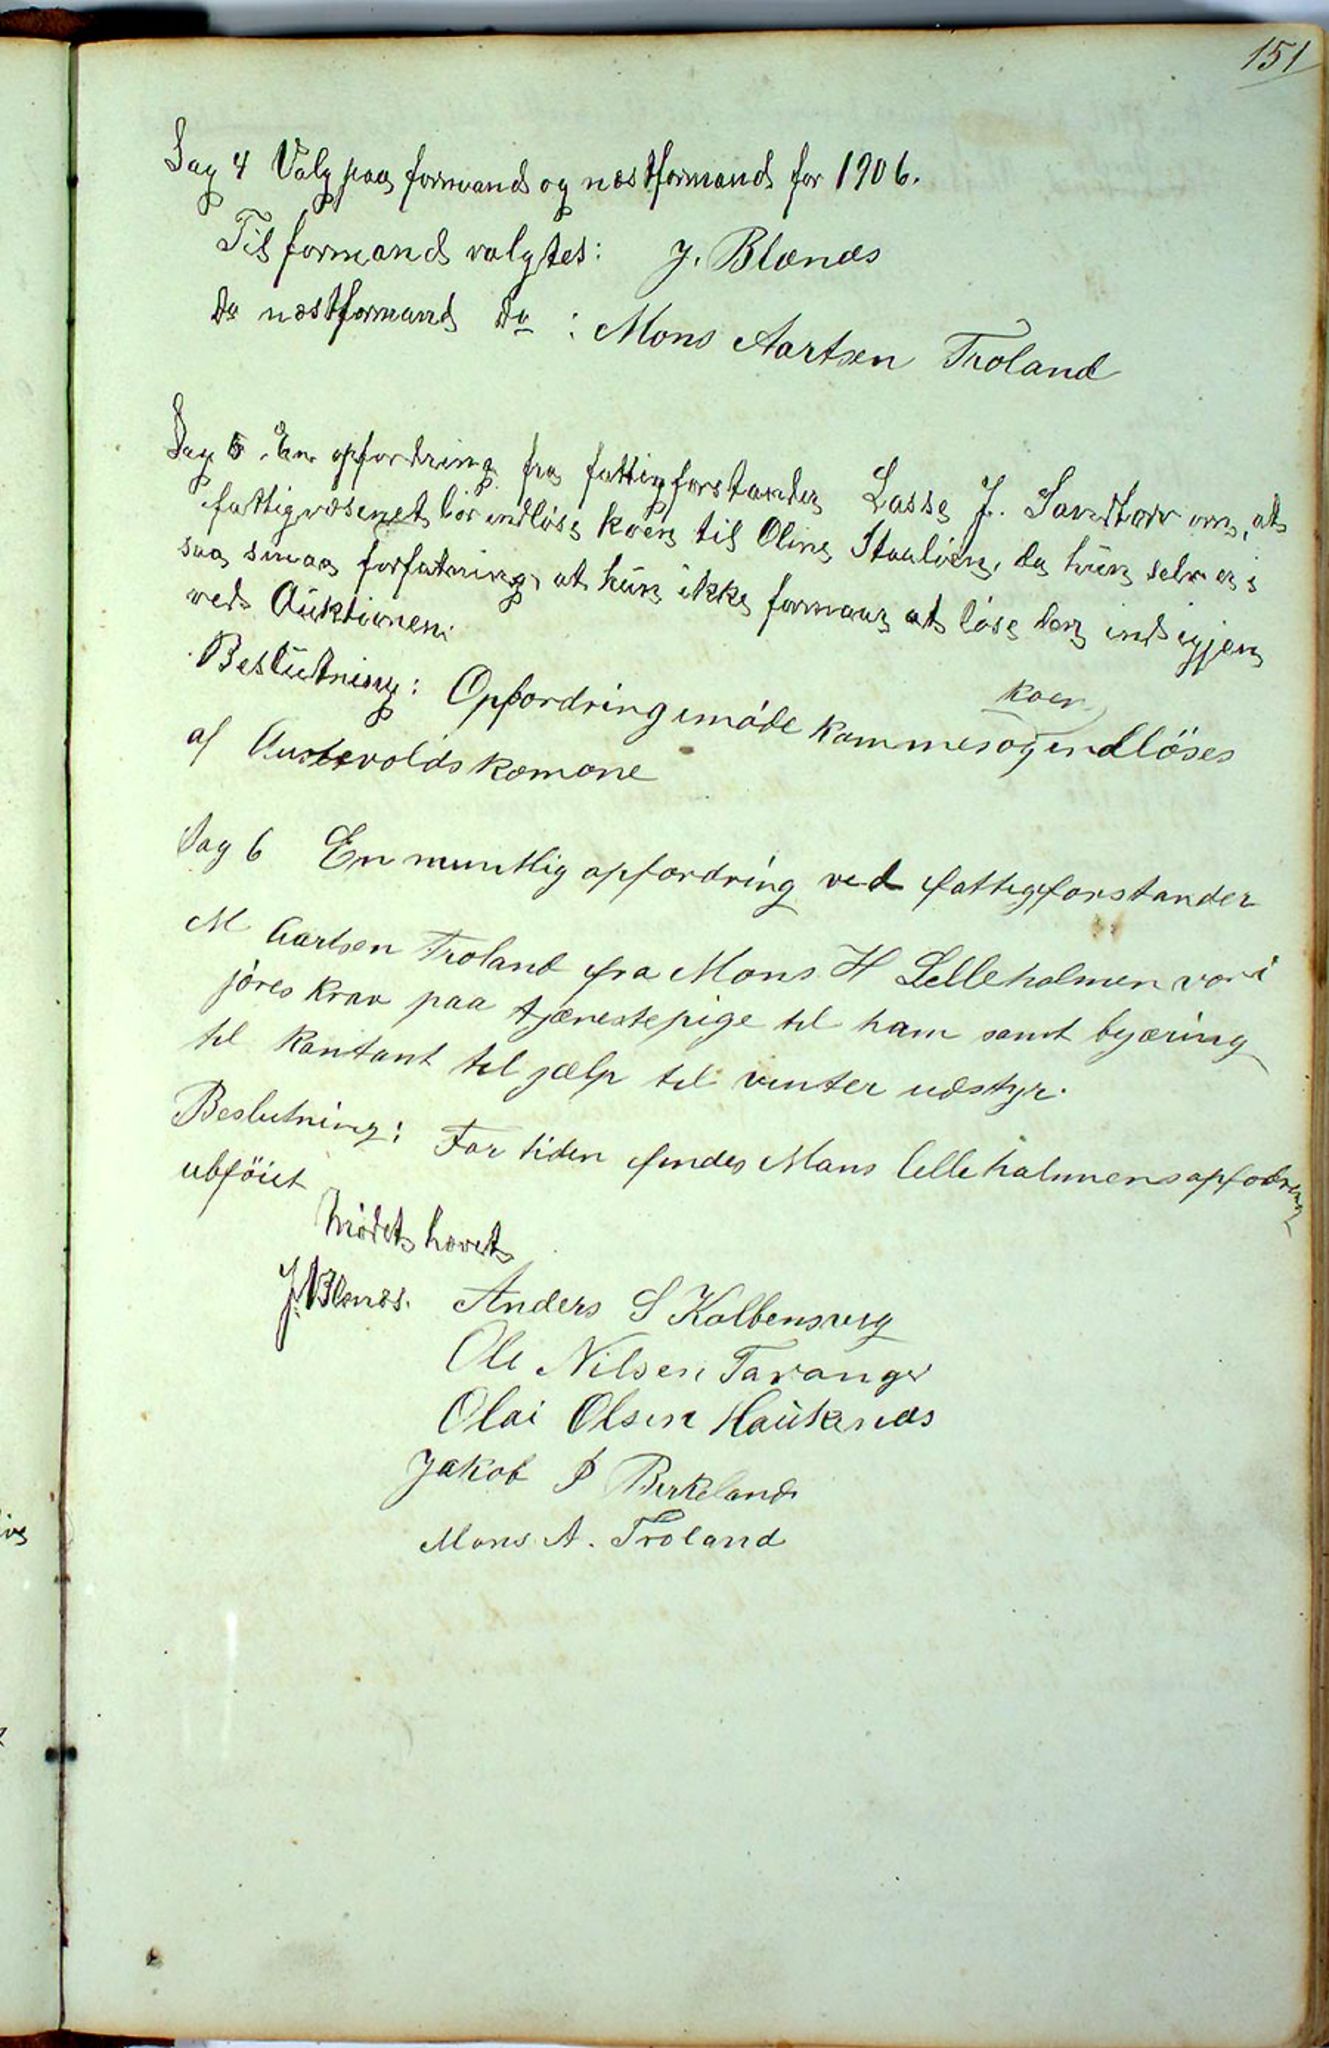 151
Sag 4 Valg paa formand og næstformand for 1906.
Til formand valgtes: J. Blænes
Do næstformand Do : Mons Aartsen Troland
Sag 5. En opfordring fra fattigforstander Lasse J. Sandtorv om, at
fattigvæsenet bör indlöse koen til Oline Staalvien, da hun selv er i
saa smaa forfatning, at hun ikke formaar at löse den ind igjen
ved Auktionen.
Beslutning: Opfordring imöde kommes og koen indlöses
af Austevolds komone
Sag 6 En muntlig opfordring ved fattigforstander
M Aartsen Troland fra Mons H Lilleholmen vor i
jöres krav paa tjænestepige til ham samt bejæring
til kontant til jælp til vinter udstyr.
Beslutning: For tiden findes Mons lilleholmens opfodring
ubföiet
Mödet hævet
J. Blænes. Anders S Kolbensvig
Ole Nilsen Taranger
Olai Olsen Haukanes
Jakob P Birkeland
Mons A. Troland